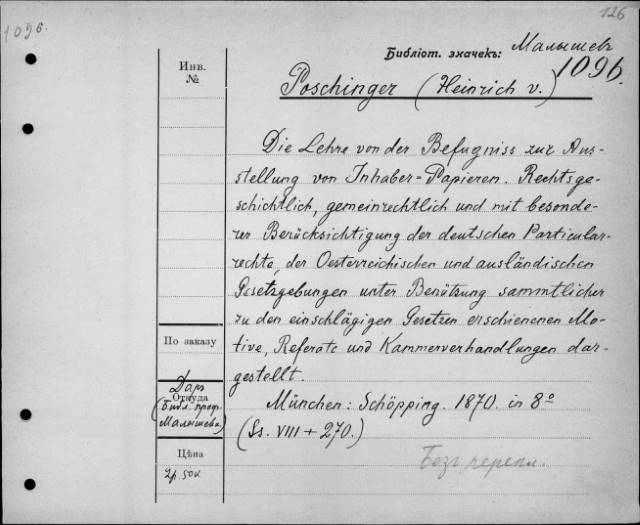 1096.
126
Библіот. значекъ: Малышевъ
1096.
Инв.
№
Poschinger (Heinrich v.)
Die Lehre von der Befugniss zur Aus-
stellung von Inhaber=Papieren. Rechtsge-
schichtlich, gemeinrechtlich und mit besonde-
rer Berücksichtigung der deutschen Particular-
rechte, der Oesterreichischen und ausländischen
Gesetzgebungen unter Benützung sammtlicher
zu den einschlägigen Gesetzen erschienenen Mo-
tive, Referate und Kammerverhandlungen dar-
gestellt.
München: Schöpping. 1870. in 8°
(Ss. VIII + 270.)
Безъ перепл.
По заказу
Даръ
Откуда
(Библ. проф.
Малышева)
Цѣна
2р. 50к